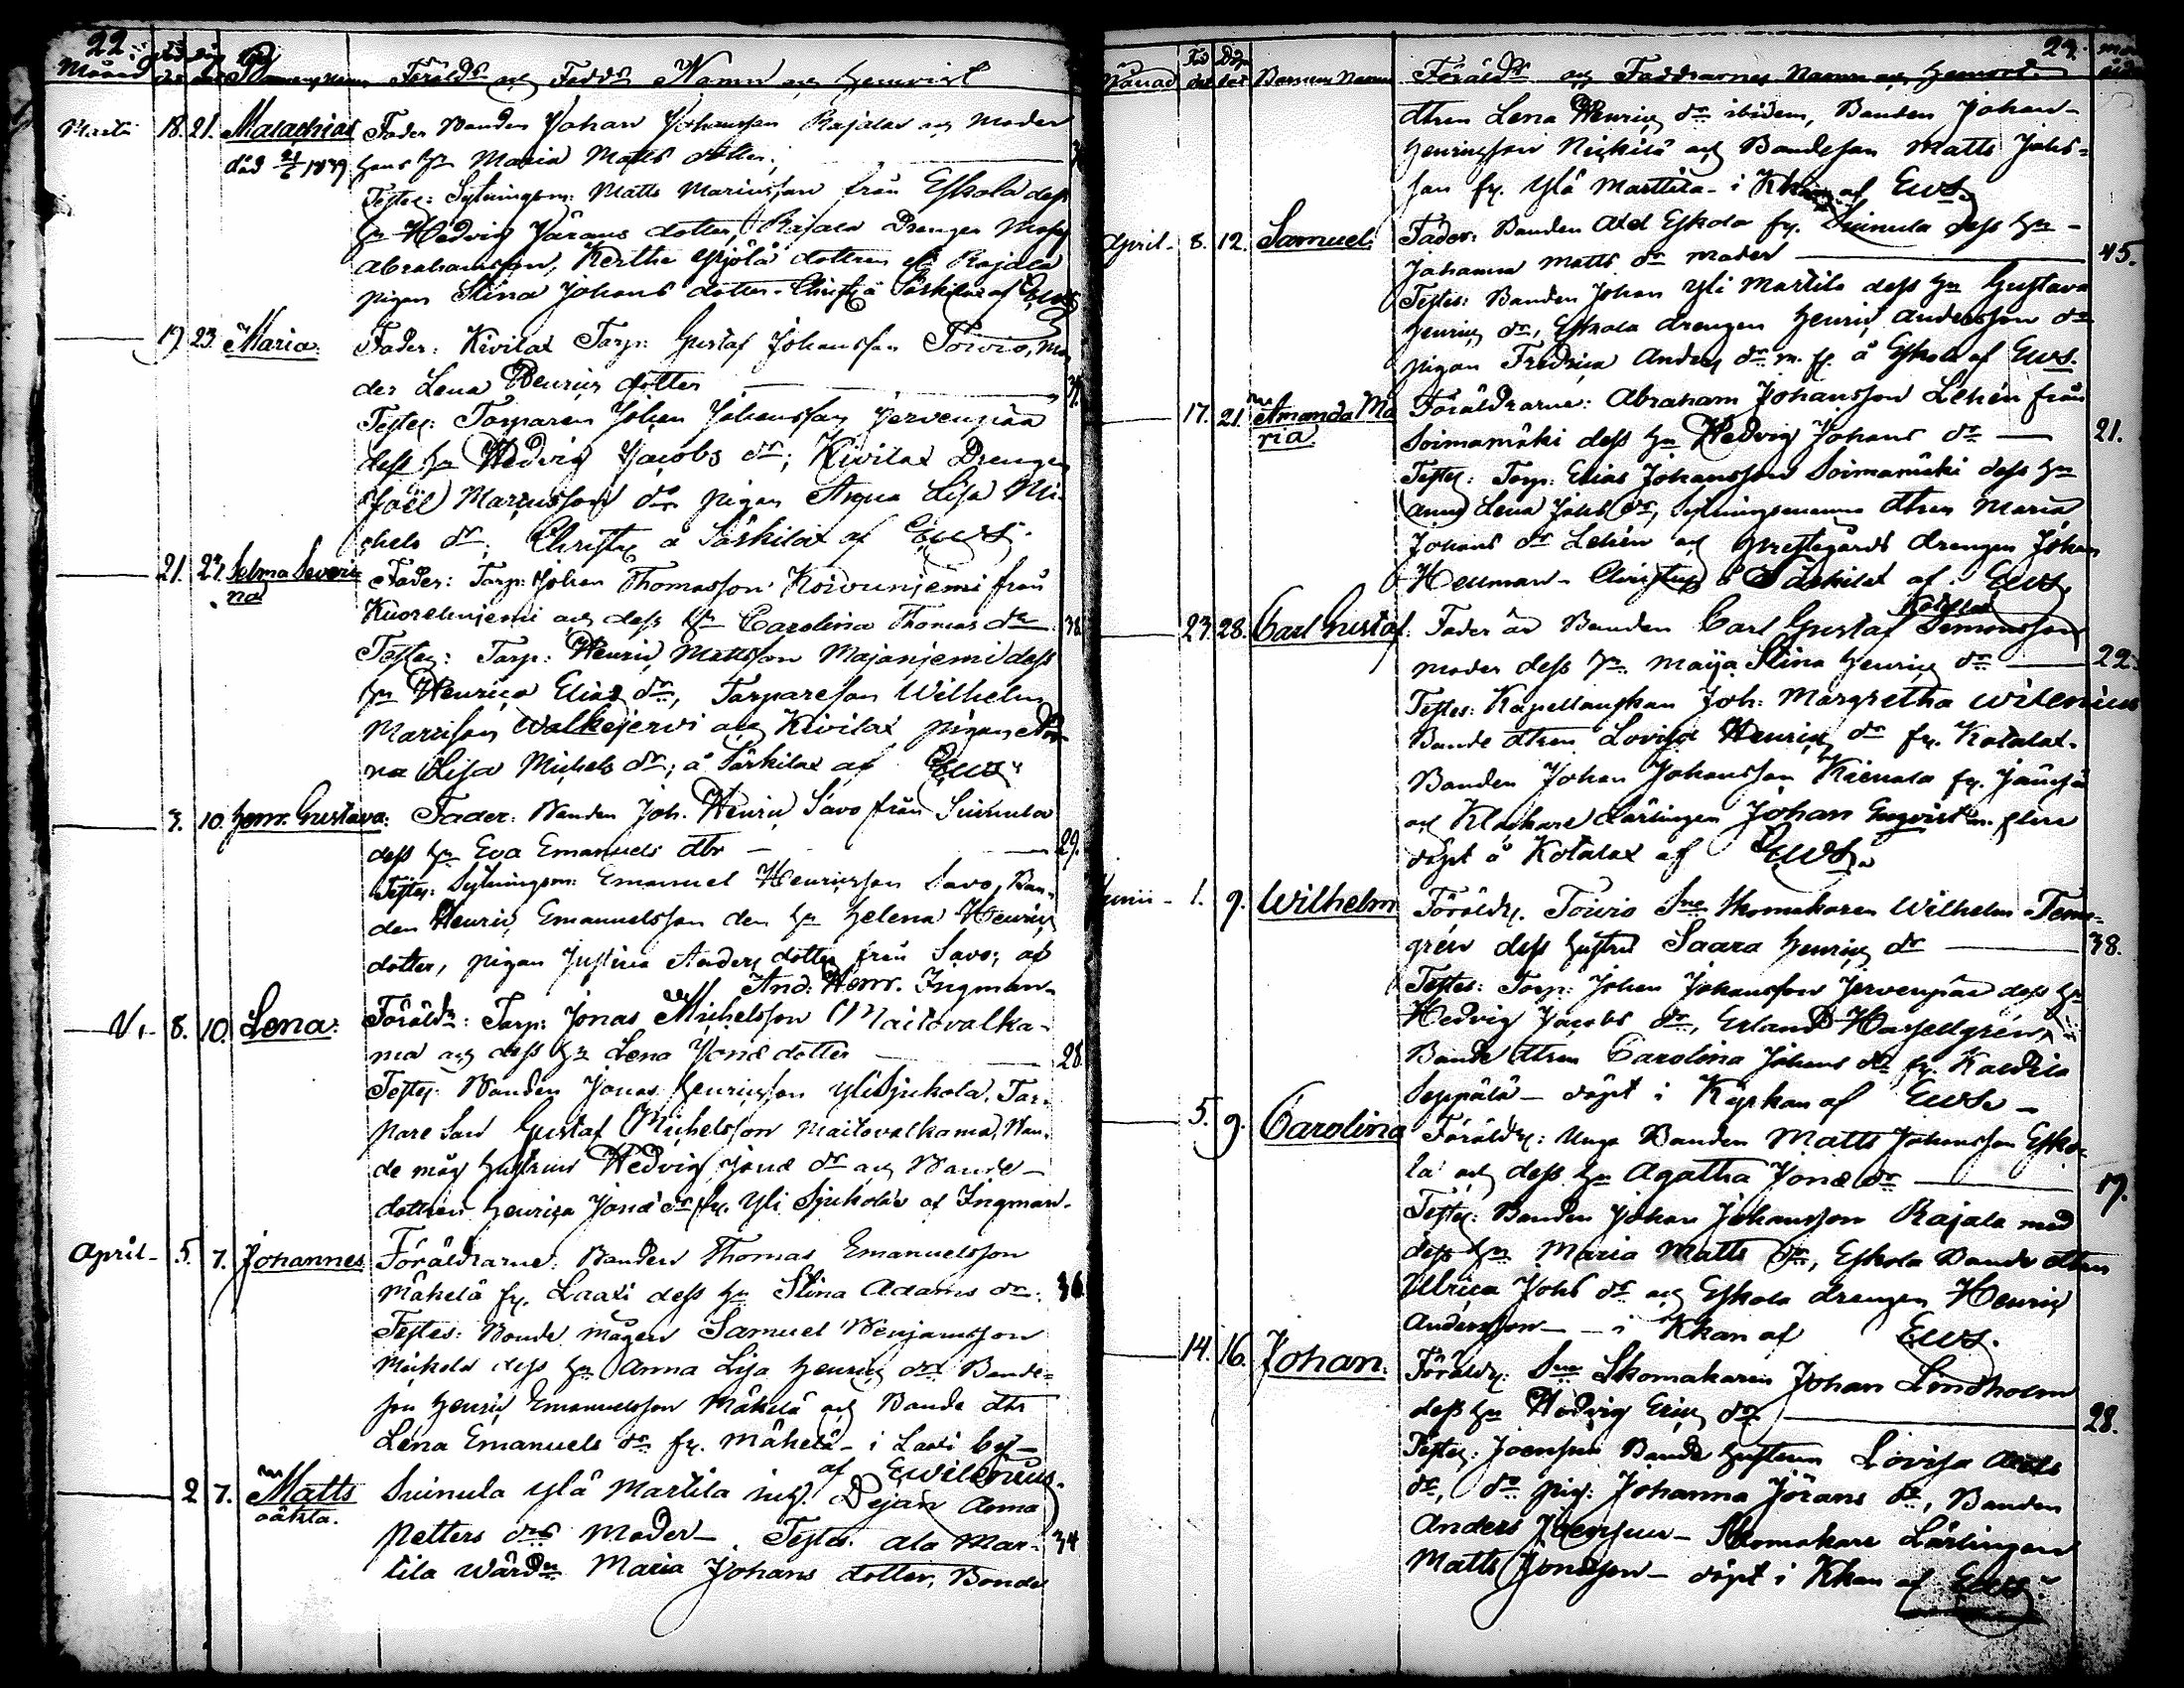 22.
Månad Föräldrs och Fadds Namn och hemvist
Martii 18. 21. Malachias Fader Bonden Johan Johansson Rajala och Moder
död 21/6 1839 hans hu Maria Matts dotter.
Testes: Sytningsm: Matts Mariusson från Eskola dess
hu Hedvig Jörans dotter, Rajala Drengen
Abrahamsson, dottren Rajala
pigan Stina Johans dotter. å Säskilax af EWS
19 23 Maria: Fader: Kivilax Torp: Gustaf Johansson Toivio, Mo
der Lena Henrics dotter 37.
Testes: Torparen Johan Johansson Jervenpää
dess hu Hedvig Jacobs dr; Kivilax Drengen
Joël dr pigan Anna Lisa Mi-
chels dr; å Säskilax af EWS.
21. 27. Selma Severi Fader: Torp: Johan Thomasson Koivunjemi från
na
Kuorelinjemi och dess hu Carolina Thomas dr. 38.
Testes: Torp: Henric Mattsson Majanjemi dess
hu Henrica Elias dr, Torpareson Wilhelm
Walkejervi och Kivilax pigan An-
na Lisa Michels dr; å Säskilax af EWS
3. 10. Henr. Gustava: Fader: Bonden Joh. Henric Savo från Suinula
dess hu Eva Emanuels dtr 29.
Testes: Sytningsm: Emanuel Henricsson Savo, Bon-
den Henric Emanuelsson den hu Helena Henrics
dotter, pigan Justina Anders dotter från Savo; af
And: Henr. Ingman.
8. 10. Lena: Föräldr: Torp: Jonas Michelsson Maitovalka-
ma och dess hu Lena Jonæ dotter 28.
Testes: Bonden Jonas Henricsson Yli Sjukola, Tor-
pare Son Gustaf Michelsson Maitovalkama, Bon-
de måg hustrun Hedvig Jonæ dr och Bonde-
dottren Henrica Jonæ dr fr. Yli Sjukola af Ingman.
April 5. 7. Johannes Föräldrarne: Bonden Thomas Emanuelsson
Mäkelä fr. Laaxi dess hu Stina Adams dr. 36
Testes: Bonde mågen Samuel Benjamsson
dess hu Anna Lisa Henrics dr Bonde-
son Henric Emanuelsson Mäkelä och Bonde dtr
Lena Emanuels dr fr. Mäkelä i Laxi by
af EWilenius.
2 7. Matts Suinula Ylä Martila Pejan Anna
oäkta.
Petters dr Moder. Testes: Ala Mar- 34
tila Wärdn Maria Johans dotter, Bonde
23.
Månad Barnens Namn Föräldrs och Faddrarnes Namn och hemort.
dtren Lena Henrics dr ibidem, Bonden Johan
Henricsson och Bondeson Matts Johs-
son fr. Ylä Marttila i Kkan af EWS.
April 8. 12. Samuel: Fader: Bonden Axel Eskola fr. Suinula dess hu
Johanna Matts dr moder 45.
Testes: Bonden Johan Yli Martila dess hu Gustava
Henrics dr, Eskola drengen Henric Andersson dr
pigan Fredrica Anders dr m. fl. å Eskola af EWS.
17. 21. Amanda Ma Föräldrarne: Abraham Johansson Lehén från
ria.
Soinamäki dess hu Hedvig Johans dr 21.
Testes: Torp: Elias Johansson Soinamäki dess hu
Anna Lena Johs dr, Sytningsmanns dtren Maria
Johans dr Lehén och Prestegårds drengen Johan
Heuman. å Säskilax af EWS.
23. 28. Carl Gustaf: Fader är Bonden Carl Gustaf Simonsson
moder dess hu Maija Stina Henrics dr 22.
Testes: Kapellanskan Joh: Margretha Wilenius
Bonde dtren Lovisa Henrics dr fr. Kotalax.
Bonden Johan Johansson
och Klockare Lärlingen Johan Engvist m. flere
döpt å Kotalax af EWS.
Junii 1. 9. Wilhelm Föräldr. Toivio Sne Skomakaren Wilhelm Tome-
grén dess hustru Saara Henrics dr 38.
Testes: Torp: Johan Johansson Jervenpää dess hu
Hedvig Jacobs dr, Erland Hassellgrén,
Bonde dtren Carolina Johans dr fr.
Seppälä döpt i Kyrkan af EWS.
5. 9. Carolina Föräldr: Unga Bonden Matts Johansson Esko-
la och dess hu Agatha Jonæ dr 19.
Testes: Bonden Johan Johansson Rajala med
dess hu Maria Matts dr, Eskola Bonde dtren
Ulrica Johs dr och Eskola drengen Henric
Andersson i Kkan af EWS.
14. 16. Johan: Föräldr: Sne Skomakaren Johan Lindholm
dess hu Hedvig Erics dr 28.
Testes: Joensuu Bonde hustrun Lovisa
dr, do pig: Johanna Jörans dr, Bonden
Anders Joensuu Skomakare Lärlingen
Matts Jonæson döpt i Kkan af EWS.